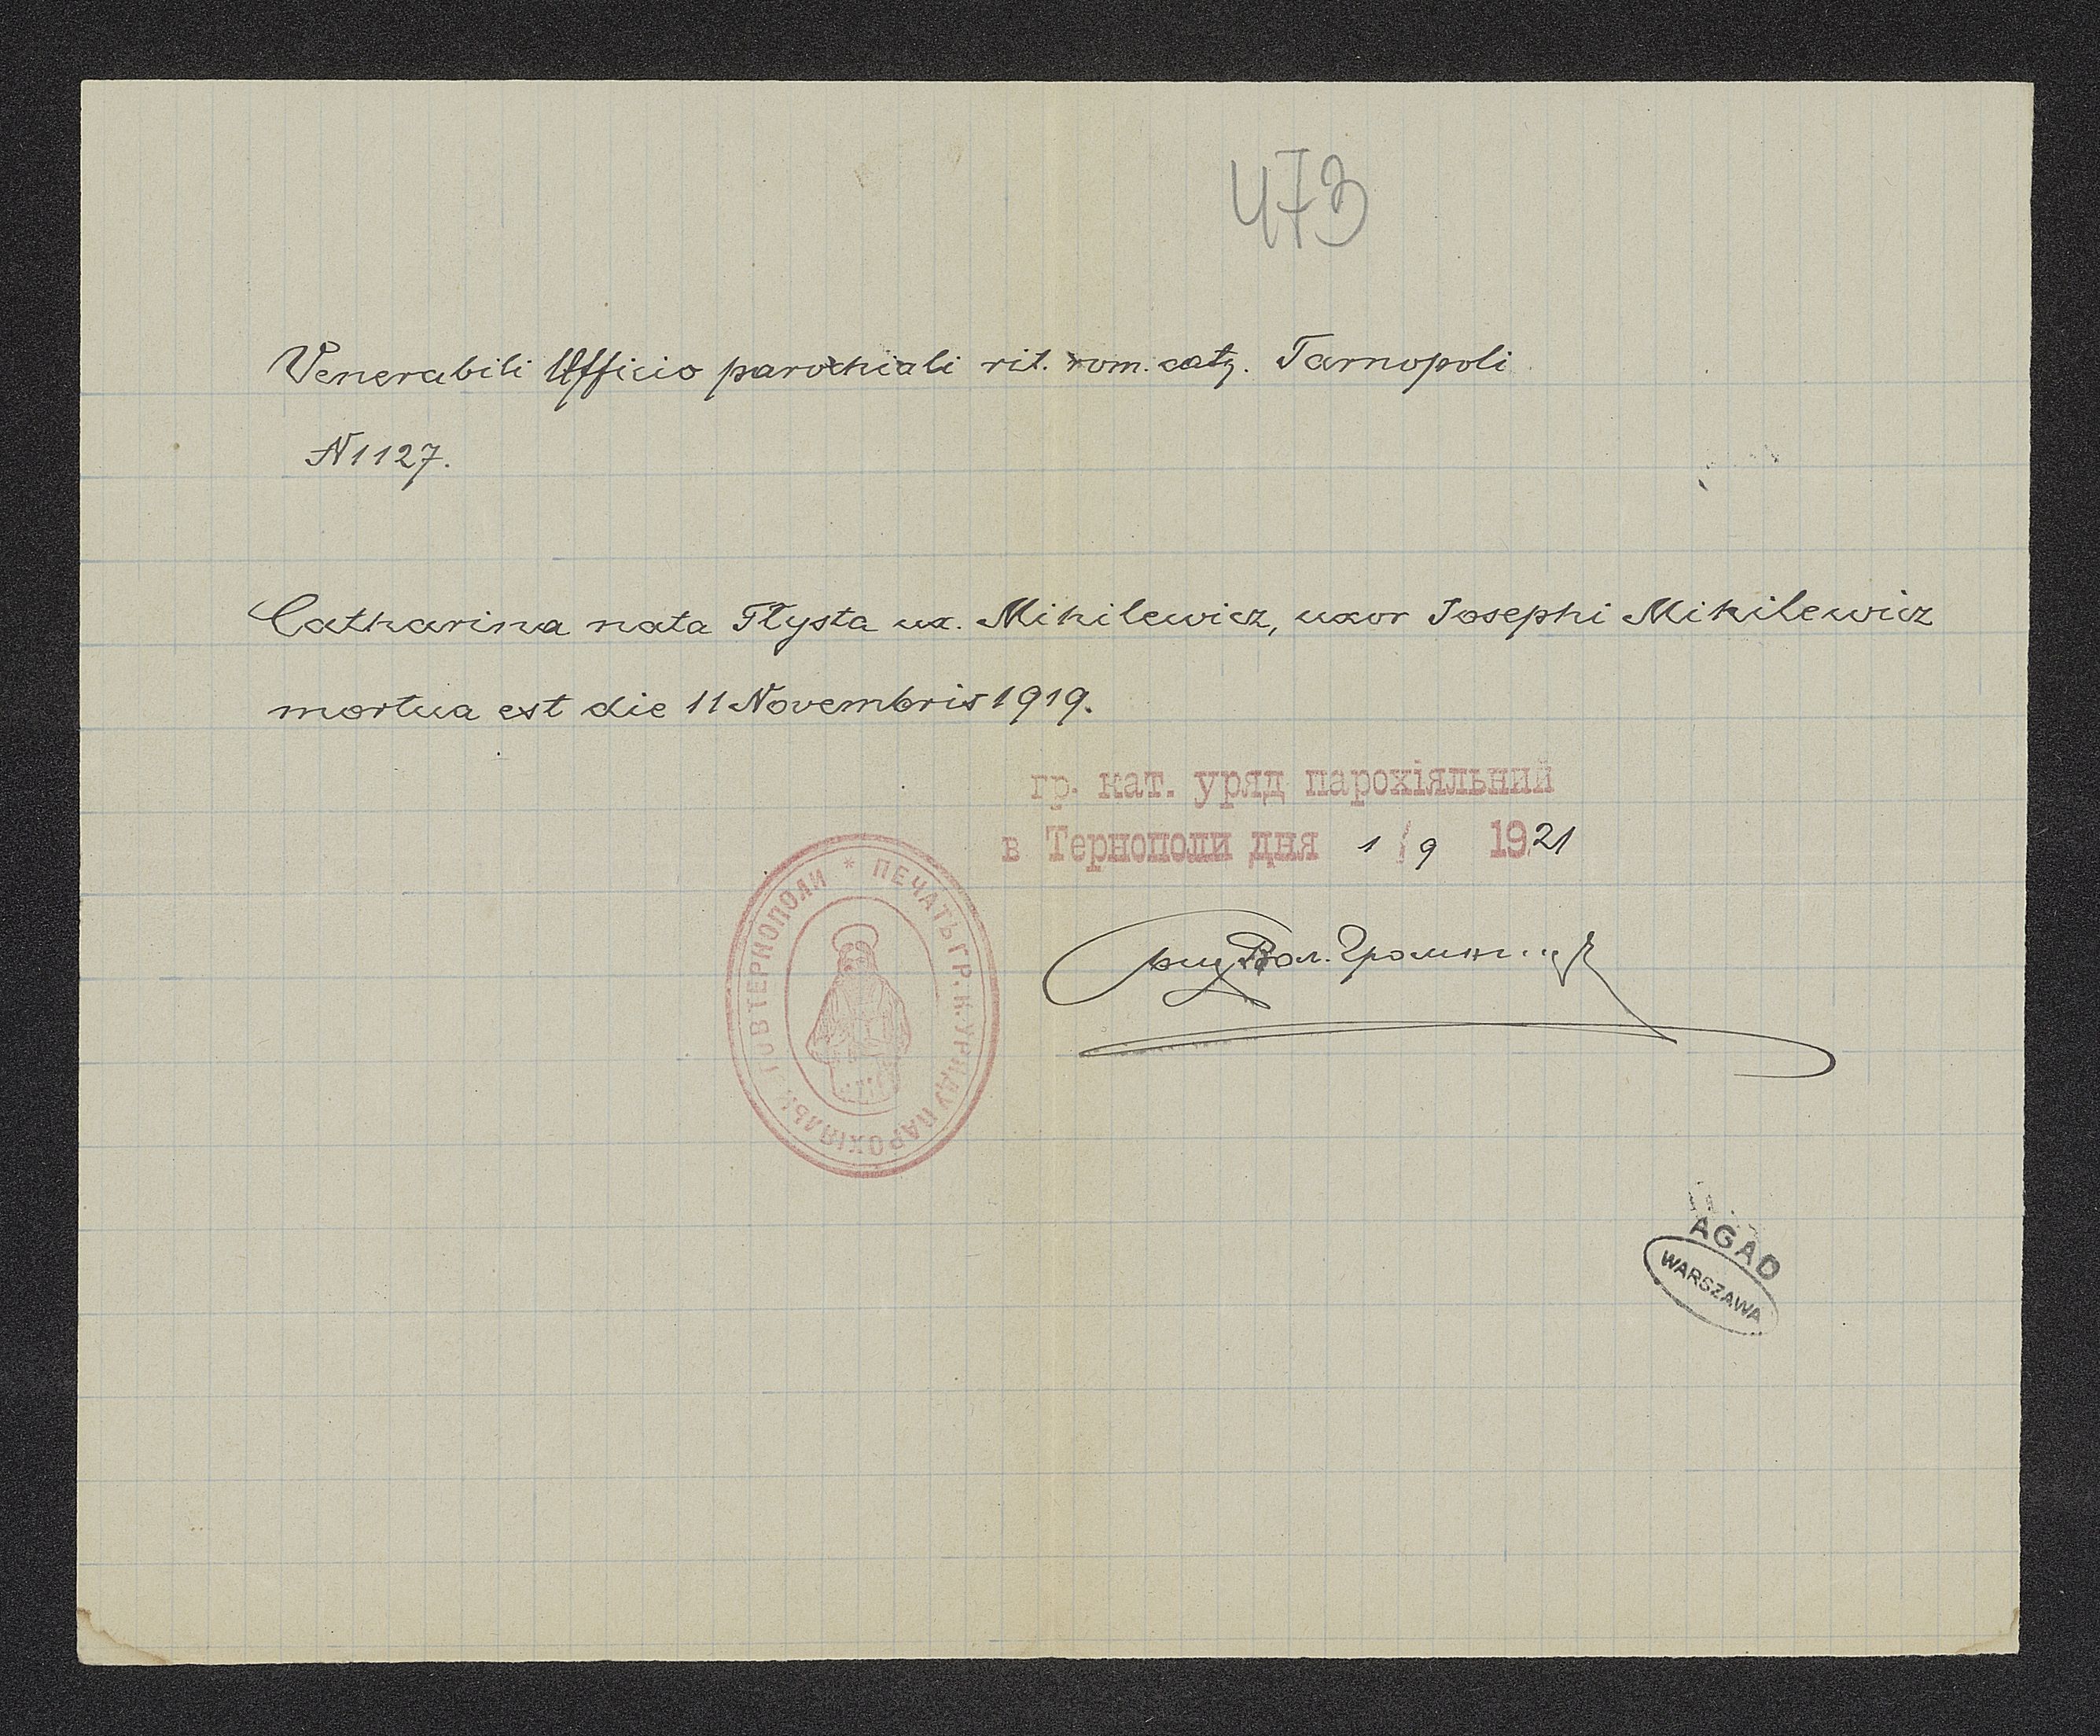 473
Venerabili Officio parochiali rit. rom. cath. Tarnopoli
N 1127.
Catharina nata Flysta ux. Mikilewicz, uxor Josephi Mikilewicz
mortua est die 11 Novembris 1919.
гр. кат. уряд парохіяльний
в Тернополи дня 1/9 1921
Вол.
ПЕЧАТЬ ГР. К. УРЯДУ ПАРОХІЯЛЬН. В ТЕРНОПОЛИ *
AGAD
WARSZAWA